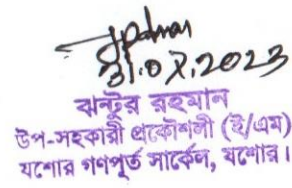 31.07.2023
ঝন্টুর রহমান
উপ-সহকারী প্রকৌশলী (ই/এম)
যশোর গণপূর্ত সার্কেল, যশোর।